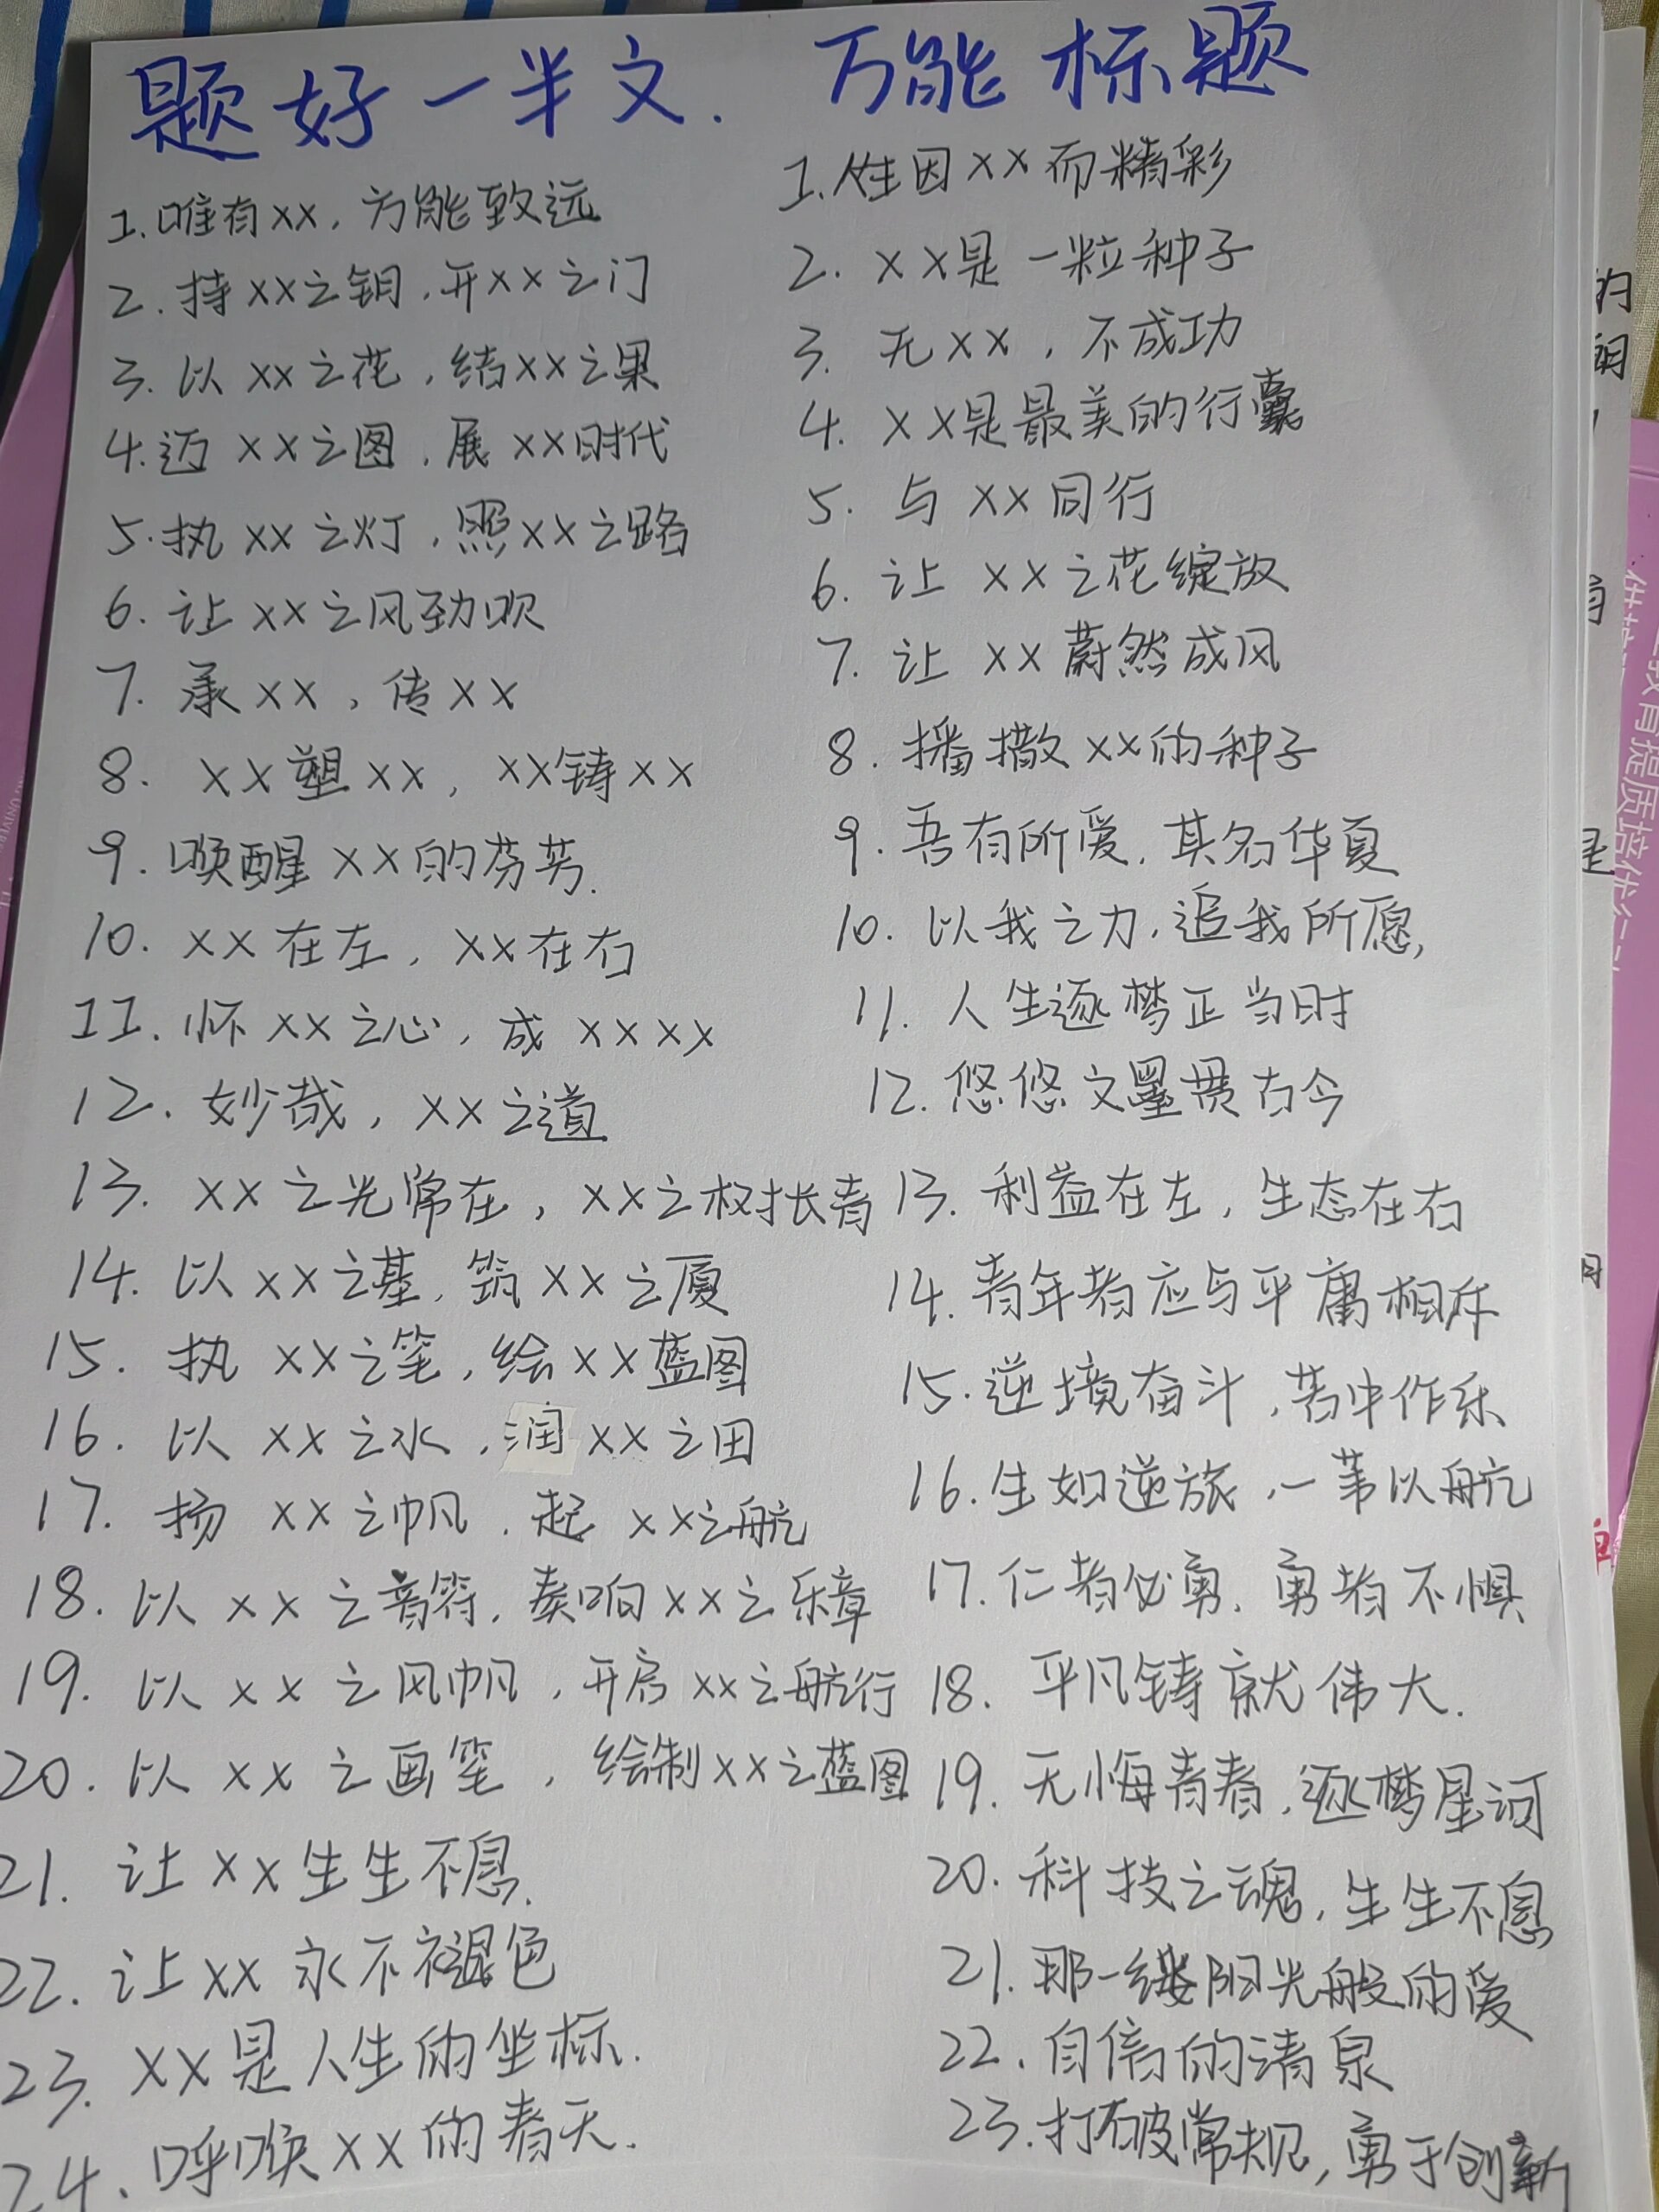 题好一半文. 万能标题
1.唯有xx,方能致远
2.持xx之钥,开xx之门
3.以xx之花,结xx之果
4.迈xx之图,展xx时代
5.执xx之灯,照xx之路
6.让xx之风劲吹
7.承xx,传xx
8.xx塑xx,xx铸xx
9.唤醒xx的芬芳.
10.xx在左,xx在右
11.怀xx之心,成xxxx
12.妙哉,xx之道
13.xx之光常在,xx之树长青
14.以xx之基,筑xx之厦
15.执xx之笔,绘xx蓝图
16.以xx之水,润xx之田
17.扬xx之帆,起xx之航
18.以xx之音符,奏响xx之乐章
19.以xx之风帆,开启xx之航行
20.以xx之画笔,绘制xx之蓝图
21.让xx生生不息.
22.让xx永不褪色
23.xx是人生的坐标.
24.呼唤xx的春天.
1.人生因xx而精彩
2.xx是一粒种子
3.无xx,不成功
4.xx是最美的行囊
5.与xx同行
6.让xx之花绽放
7.让xx蔚然成风
8.播撒xx的种子
9.吾有所爱,其名华夏
10.以我之力,追我所愿,
11.人生逐梦正当时
12.悠悠文墨贯古今
13.利益在左,生态在右
14.青年者应与平庸相斥
15.逆境奋斗,苦中作乐
16.生如逆旅,一苇以航
17.仁者必勇,勇者不惧
18.平凡铸就伟大.
19.无悔青春,逐梦星河
20.科技之魂,生生不息
21.那一缕阳光般的爱
22.自信的清泉
23.打破常规,勇于创新